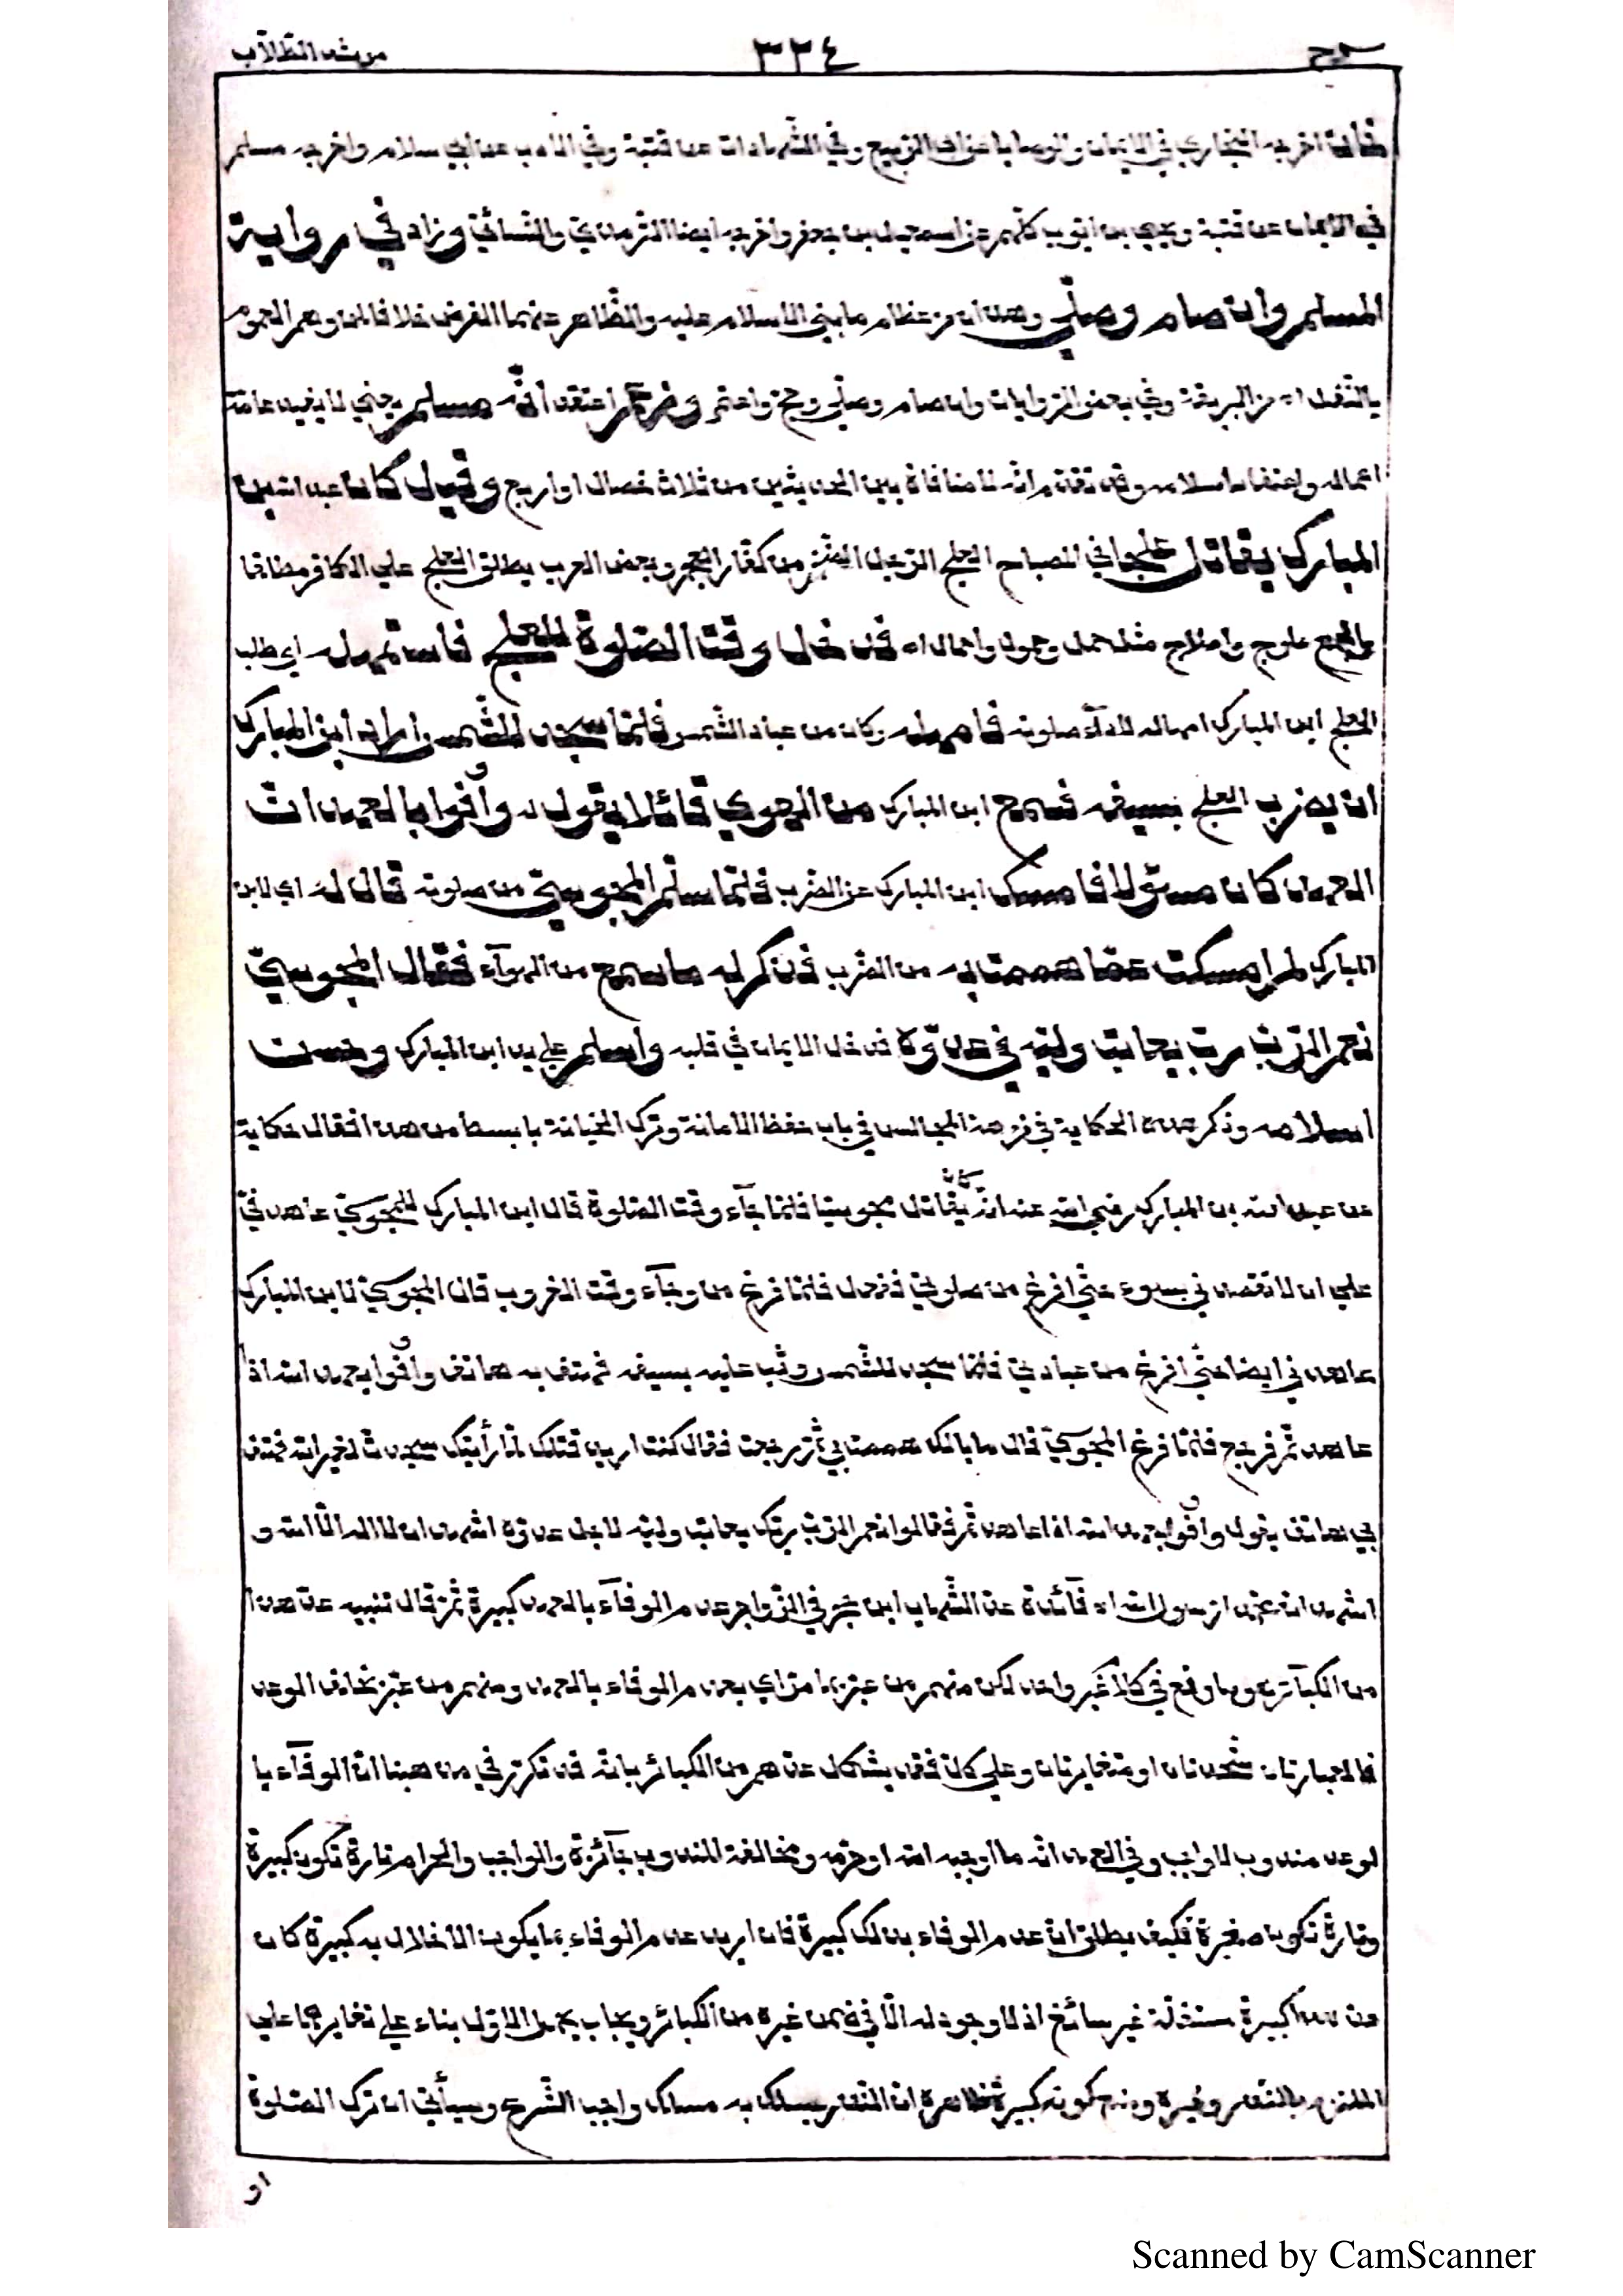 شرح ٣٣٤ مرشد الطّلّاب
خان اخرجه البخاري في الايمان والوصايا عن ابي الربيع وفي الشّهادات عن قتيبة وفي الادب عن ابن سلام واخرجه مسلم
في الايمان عن قتيبة ويحيى بن ايّوب كلّهم عن اسمعيل بن جعفر واخرجه ايضا التّرمذيّ والنّسائيّ وزاد في رواية
المسلم وان صام وصلّى وهذان من عظام ما بني الاسلام عليه والظّاهر عنهما الفرض خلافا لمن وهم العموم
بالنّفل اه من البريقة وفي بعض الرّوايات وان صام وصلّى وحجّ واعتمر وزعم اعتقد أنّه مسلم يعني لا يفيد عامّة
اعماله واعتقاد اسلامه وقد تقدّم انّه لا منافاة بين الحديثين من ثلاث خصال او اربع وقيل كان عبد الله بن
المبارك يقاتل علجا في المصباح العلج الرّجل الضّخم من كفّار العجم وبعض العرب يطلق العلج على الكافر مطلقا
والجمع علوج واعلاج مثل حمل وحمول واحمال اه فدخل وقت الصّلوة للعلج فاستمهله اي طلب
العلج ابن المبارك امهاله لاداء صلوته فامهله وكان من عبّاد الشّمس فلمّا سجد للشّمس اراد ابن المبارك
ان يضرب العلج بسيفه فسمع ابن المبارك من الهوى قائلا يقول له وأوفوا بالعهد انّ
العهد كان مسئولا فامسك ابن المبارك عن الضّرب فلمّا سلّم المجوسيّ من صلوته قال له اي لابن
المبارك لم امسكت عمّا هممت به من الضّرب فذكر له ما سمع من الهوآء فقال المجوسيّ
نعم الرّبّ ربّ يعاتب وليّه في عدوّه فدخل الايمان في قلبه واسلم على يد ابن المبارك وحسن
اسلامه وذكر هذه الحكاية في نزهة المجالس في باب حفظ الامانة وترك الخيانة بابسط من هذا فقال حكاية
عن عبد الله بن المبارك رضي الله عنه انّه كان يقاتل مجوسيّا فلمّا جآء وقت الصّلوة قال ابن المبارك للمجوسيّ عاهدني
على ان لا تقصدني بسوء حتّى افرغ من صلوتي ففعل فلمّا فرغ من وجآء وقت الغروب قال المجوسيّ لابن المبارك
عاهدني ايضا حتّى افرغ من عبادتي فلمّا سجد للشّمس وثب عليه بسيفه فهتف به هاتف وأوفوا بعهد الله اذا
عاهدتم فرجع فلمّا فرغ المجوسيّ قال ما بالك هممت بي ثمّ رجعت فقال كنت اريد قتلك لمّا رأيتك سجدت لغير الله فهتف
بي هاتف يقول وأوفوا بعهد الله اذا عاهدتم فقال نعم الرّبّ ربّك يعاتب وليّه لاجل عدوّه اشهد ان لا اله الّا الله و
اشهد انّ محمّدا رسول الله اه فآئدة عدّ الشّهاب ابن حجر في الزّواجر عدم الوفآء بالعهد كبيرة ثمّ قال تنبيه عدّ هذا
من الكبآئر هو ما وقع في كلام غير واحد لكن منهم من عبّر بما مرّ اي بعدم الوفاء بالعهد ومنهم من عبّر بخلف الوعد
فالعبارتان متّحدتان او متغايرتان وعلى كلّ فقد يشكل عدّهم من الكبائر بانّه قد تكرّر في مذهبنا انّ الوفآء با
لوعد مندوب لا واجب وفي العهد انّه ما اوجبه الله او حرّمه ومخالفة المندوب جآئزة والواجب والحرام تارة تكون كبيرة
وتارة تكون صغيرة فكيف يطلق انّ عدم الوفاء بذلك كبيرة فان اريد عدم الوفاء بما يكون الاخلال به كبيرة كان
عدّ هذا كبيرة مستقلّة غير سائغ اذ لا وجود له الّا في ضمن غيره من الكبائر ويجاب بحمل الاوّل بناء على تغايرهما على
الملتزم بالنّذر ونحوه ومنع كونه كبيرة ظاهرة انّ النّذر يسلك به مسلك واجب الشّرع وسيأتي ان ترك الصّلوة
او
Scanned by CamScanner